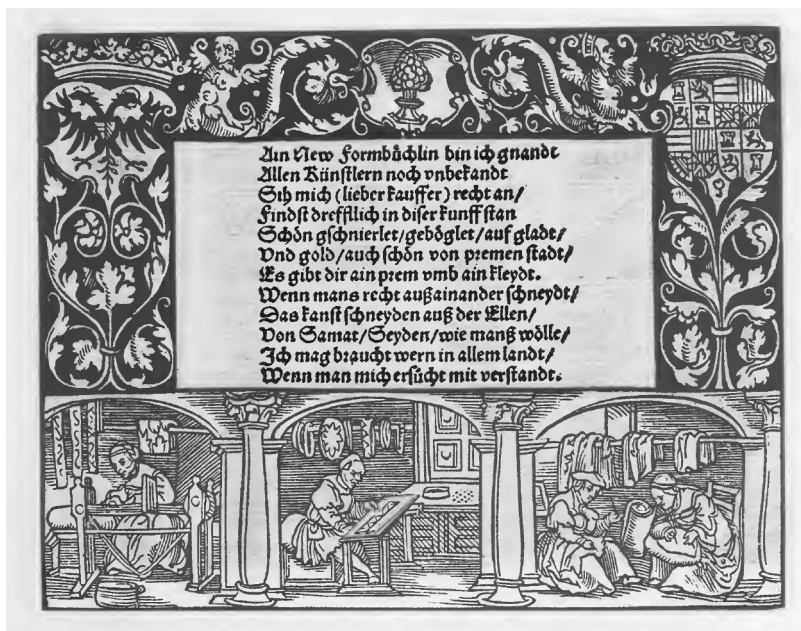 Ain New Formbüchlin bin ich gnandt
Allen Künstlern noch vnbekandt
Sih mich (lieber kauffer) recht an/
Findst drefftlich in diser kunff stan
Schön gschnierlet/geböglet/auf gladt/
Vnd gold/auch schön von premen stadt/
Es gibt dir ain prem vmb ain kleydt.
Wenn mans recht außainander schneydt/
Das kanst schneyden auß der Ellen/
Von Samat/Seyden/wie manß wölle/
Ich mag braucht wern in allem landt/
Wenn man mich ersücht mit verstandt.